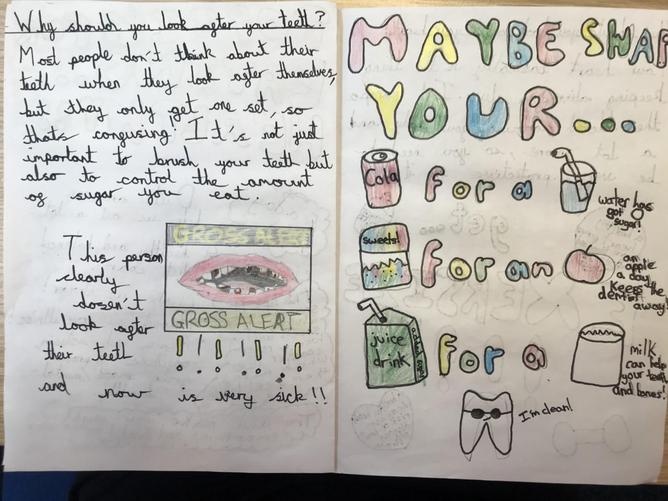 Why should you look after your teeth?
Most people don't think about their
teeth when they look after themselves,
but they only get one set, so
thats confusing. It's not just
important to brush your teeth but
also to control the amount
of sugar you eat.
This person
clearly
dosen't
look after
their teeth
and now is very sick!!
GROSS ALERT
GROSS ALERT
MAYBE SWAP
YOUR...
Cola
for a
water has
got 0
sugar!
sweets!
for an
an
apple
a day
keeps the
dentist
away!
juice
drink
for a
milk
can help
your teeth
and bones!
I'm clean!